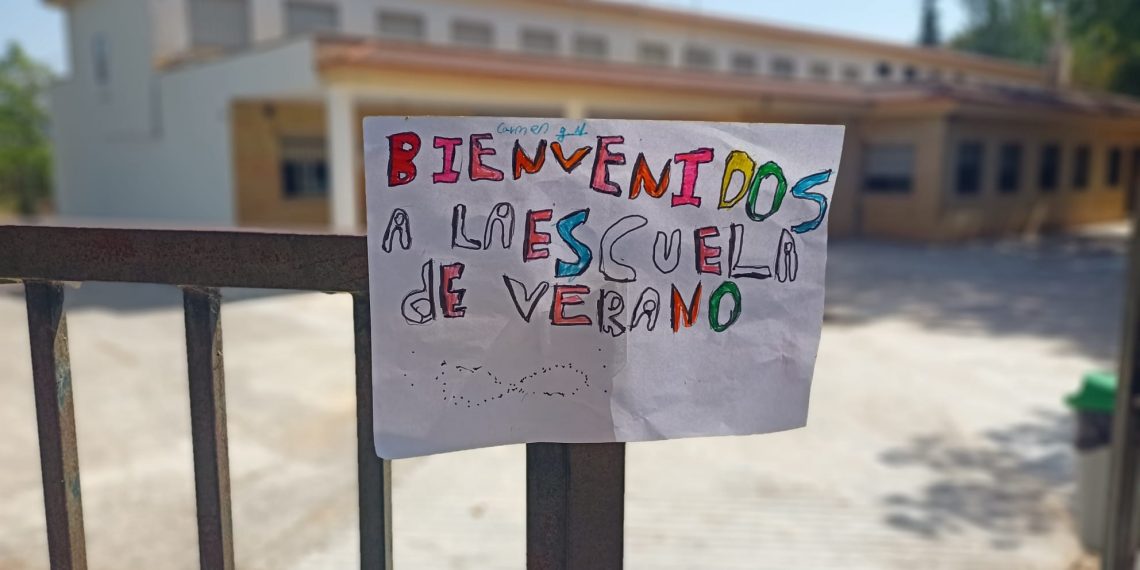 Carmen g.H
BIENVENIDOS
A LA ESCUELA
de VERANO